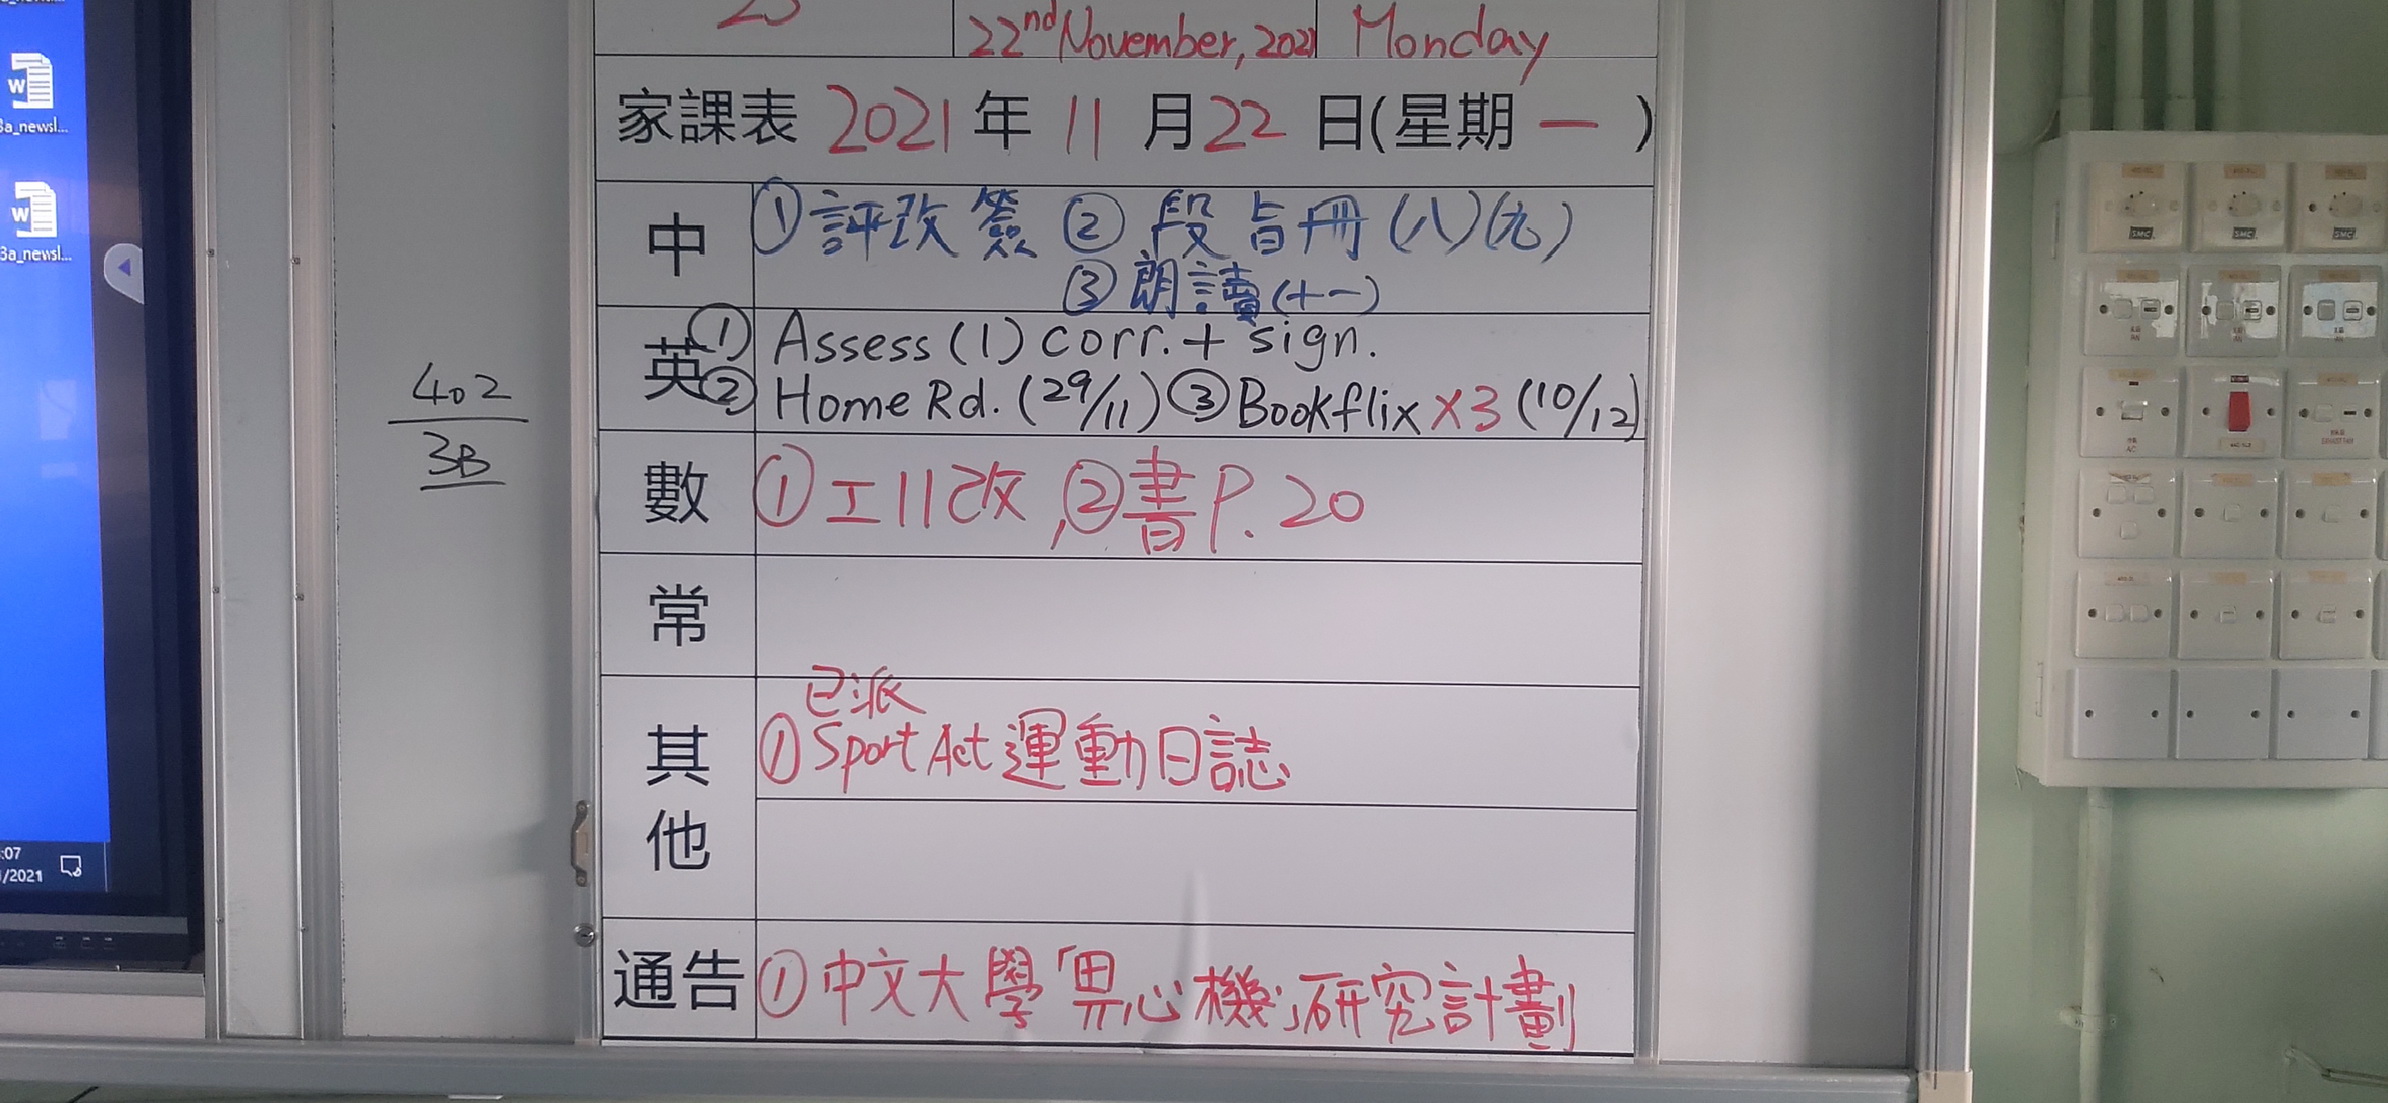 22nd November, 2021 Monday
家課表 2021 年 11 月 22 日(星期 一 )
中 ①評改簽 ②段旨冊(八)(九)
③朗讀(十一)
英 ① Assess (1) corr. + sign.
② Home Rd. (29/11) ③ Bookflix x3 (10/12)
數 ①工11改, ②書P.20
常
已派
其他 ①Sport Act 運動日誌
通告 ①中文大學「心機」研究計劃
402
3B
3a_newsl...
3a_newsl...
:07
/2021